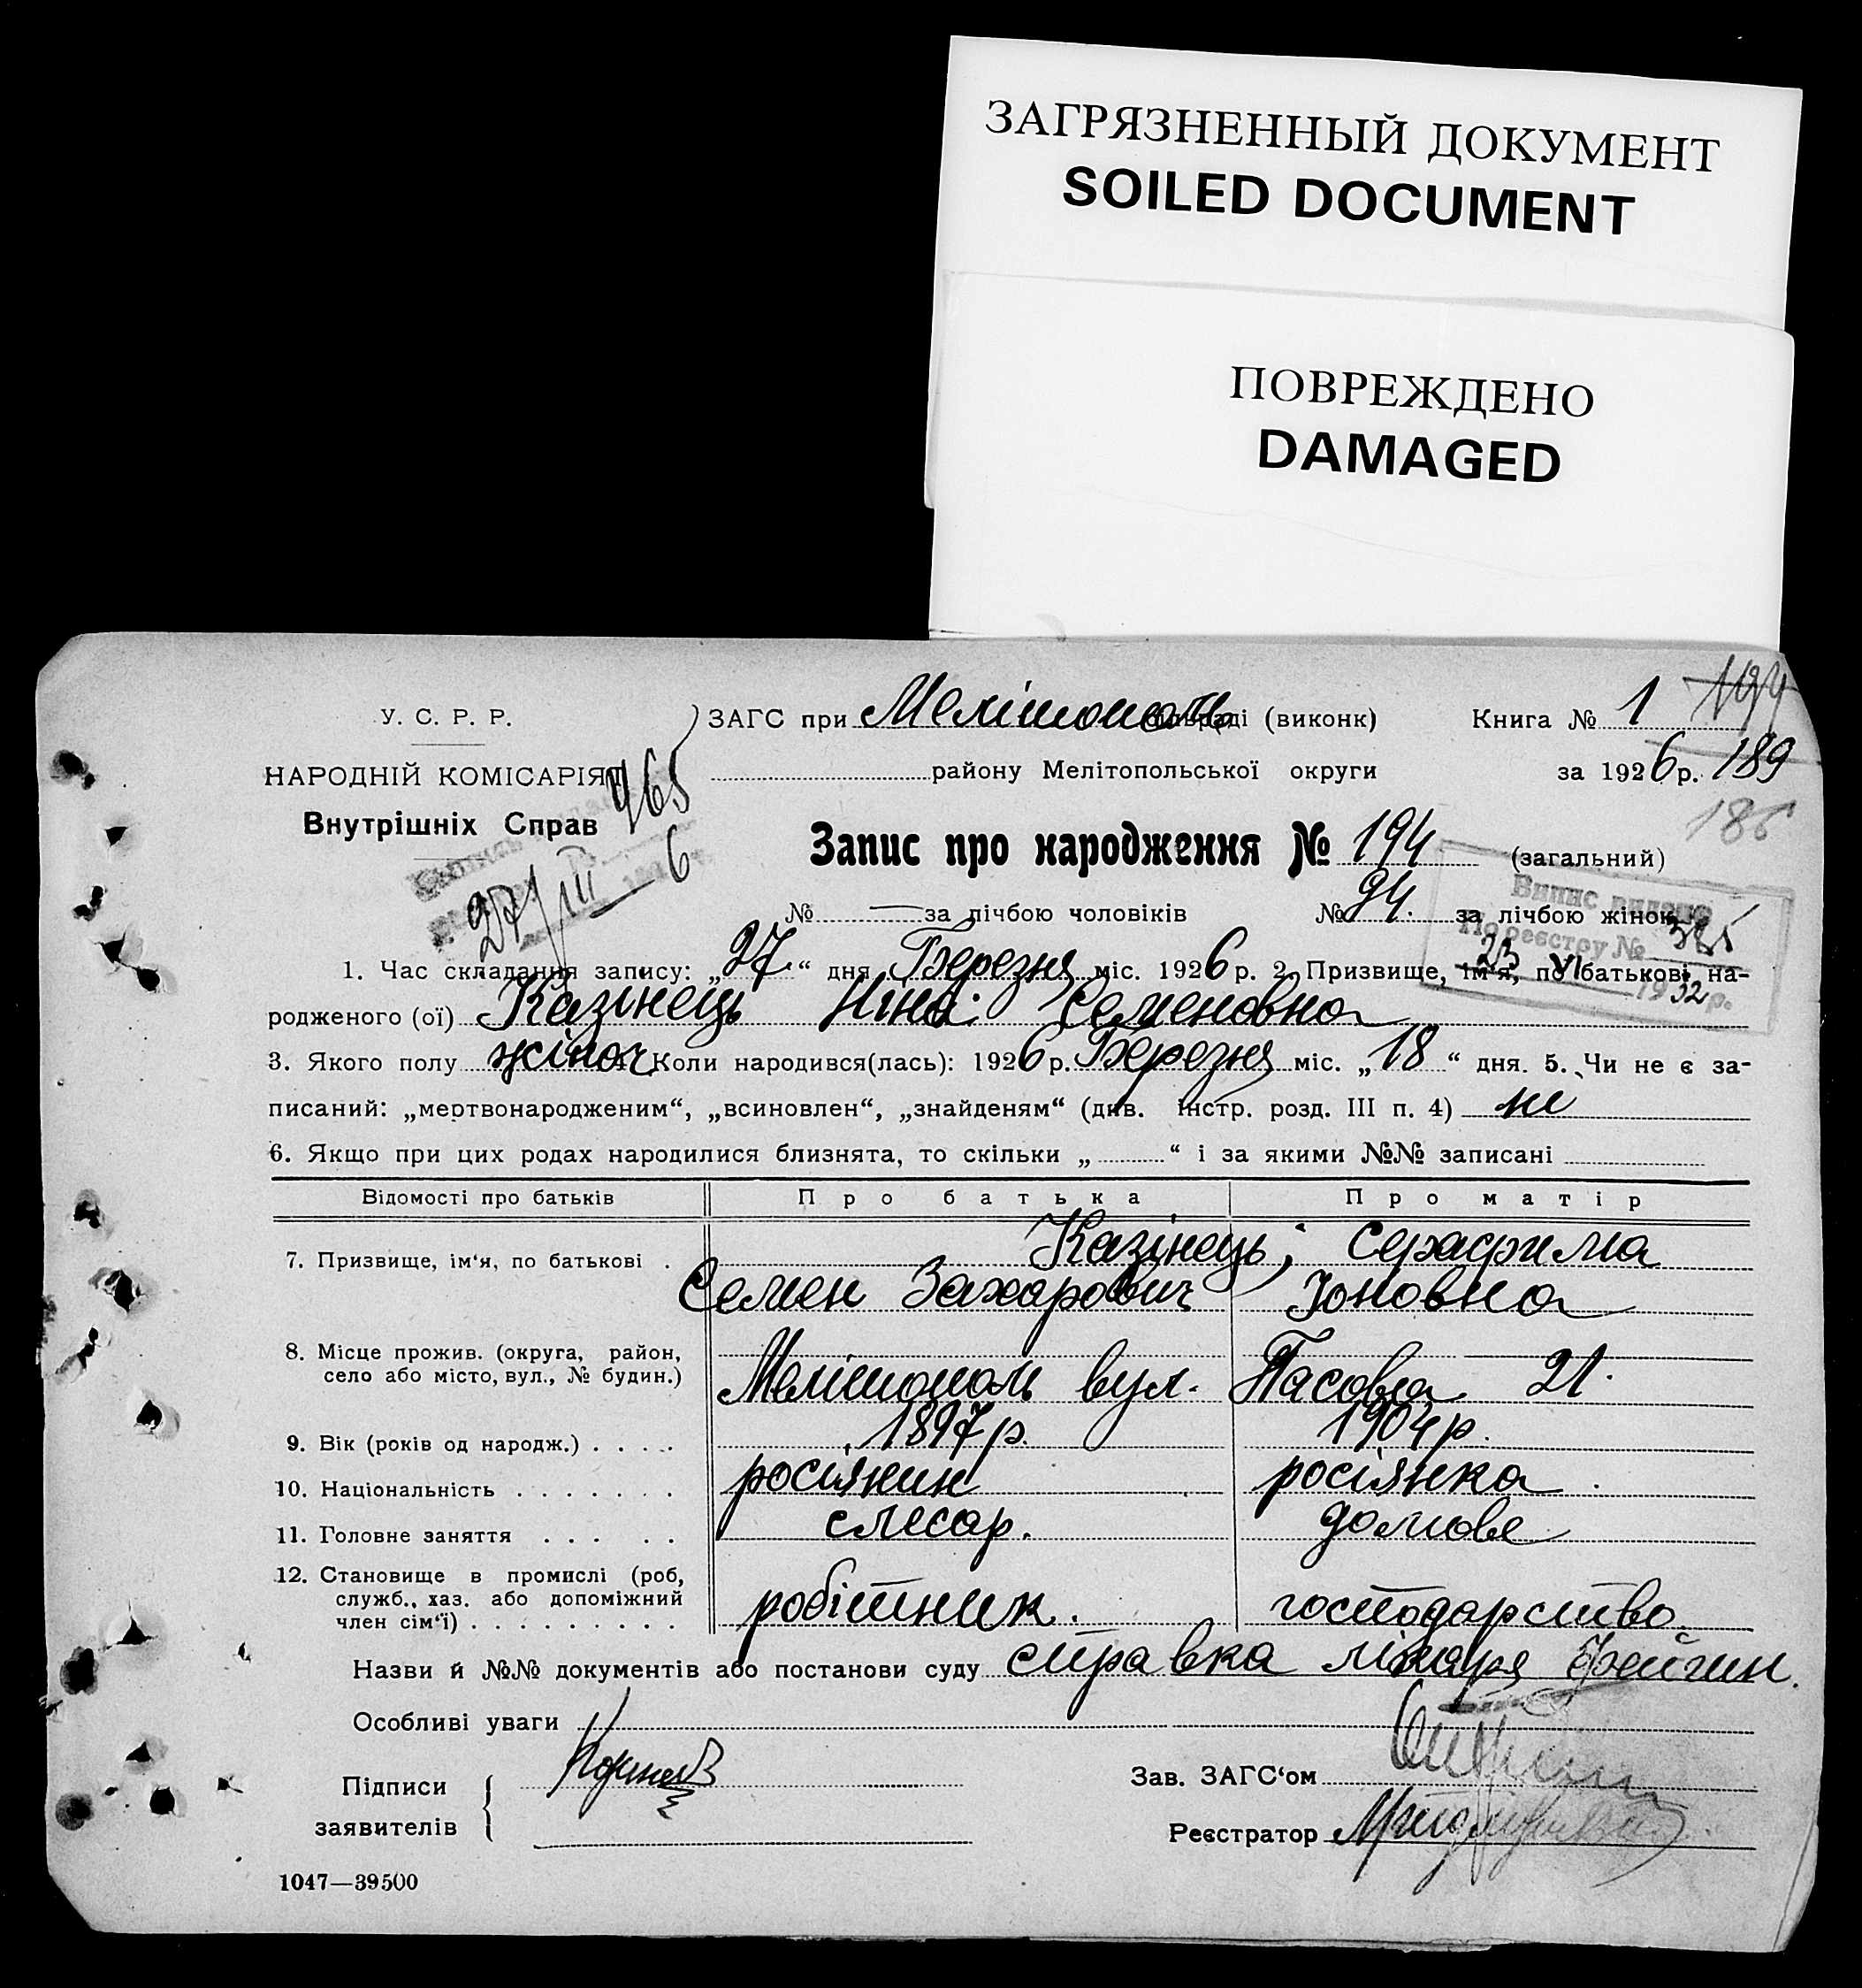 ЗАГРЯЗНЕННЫЙ ДОКУМЕНТ
SOILED DOCUMENT
ПОВРЕЖДЕНО
DAMAGED
194
У. С. Р. Р.
ЗАГС при Мелітополь раді (виконк) Книга № 1
НАРОДНІЙ КОМІСАРІЯТ
району Мелітопольської округи за 1926 р. 189
465
Внутрішніх Справ
186
Запис про народження № 194 (загальний)
27/III 6
№ — за лічбою чоловіків № 94. за лічбою жінок
Випис видано
По реєстру №
23 VI 1932 р.
1. Час складання запису: „27“ дня Березня міс. 1926 р. 2. Призвище, ім'я, по батькові на-
родженого (ої) Казінець Ніна Семеновна
3. Якого полу жіноч 4. Коли народився(лась): 1926 р. Березня міс. „18“ дня. 5. Чи не є за-
писаний: „мертвонародженим“, „всиновлен“, „знайденям“ (див. інстр. розд. III п. 4) ні
6. Якщо при цих родах народилися близнята, то скільки „ “ і за якими №№ записані
Відомості про батьків Про батька Про матір
7. Призвище, ім'я, по батькові . Казінець; Серафима
Семен Захарович Іоновна
8. Місце прожив. (округа, район,
село або місто, вул., № будин.) Мелітополь вул. Пасовая 21.
9. Вік (років од народж.) . . . . 1897 р. 1904 р.
10. Національність . . . . . . . росіянин росіянка .
11. Головне заняття . . . . . слесар. домове
12. Становище в промислі (роб,
служб., хаз. або допоміжний
член сім'ї) . . . . . . . . . робітник. господарство.
Назви й №№ документів або постанови суду справка лікаря Фейгин.
Особливі уваги
Підписи
заявителів
Зав. ЗАГС'ом
Реєстратор
1047—39500